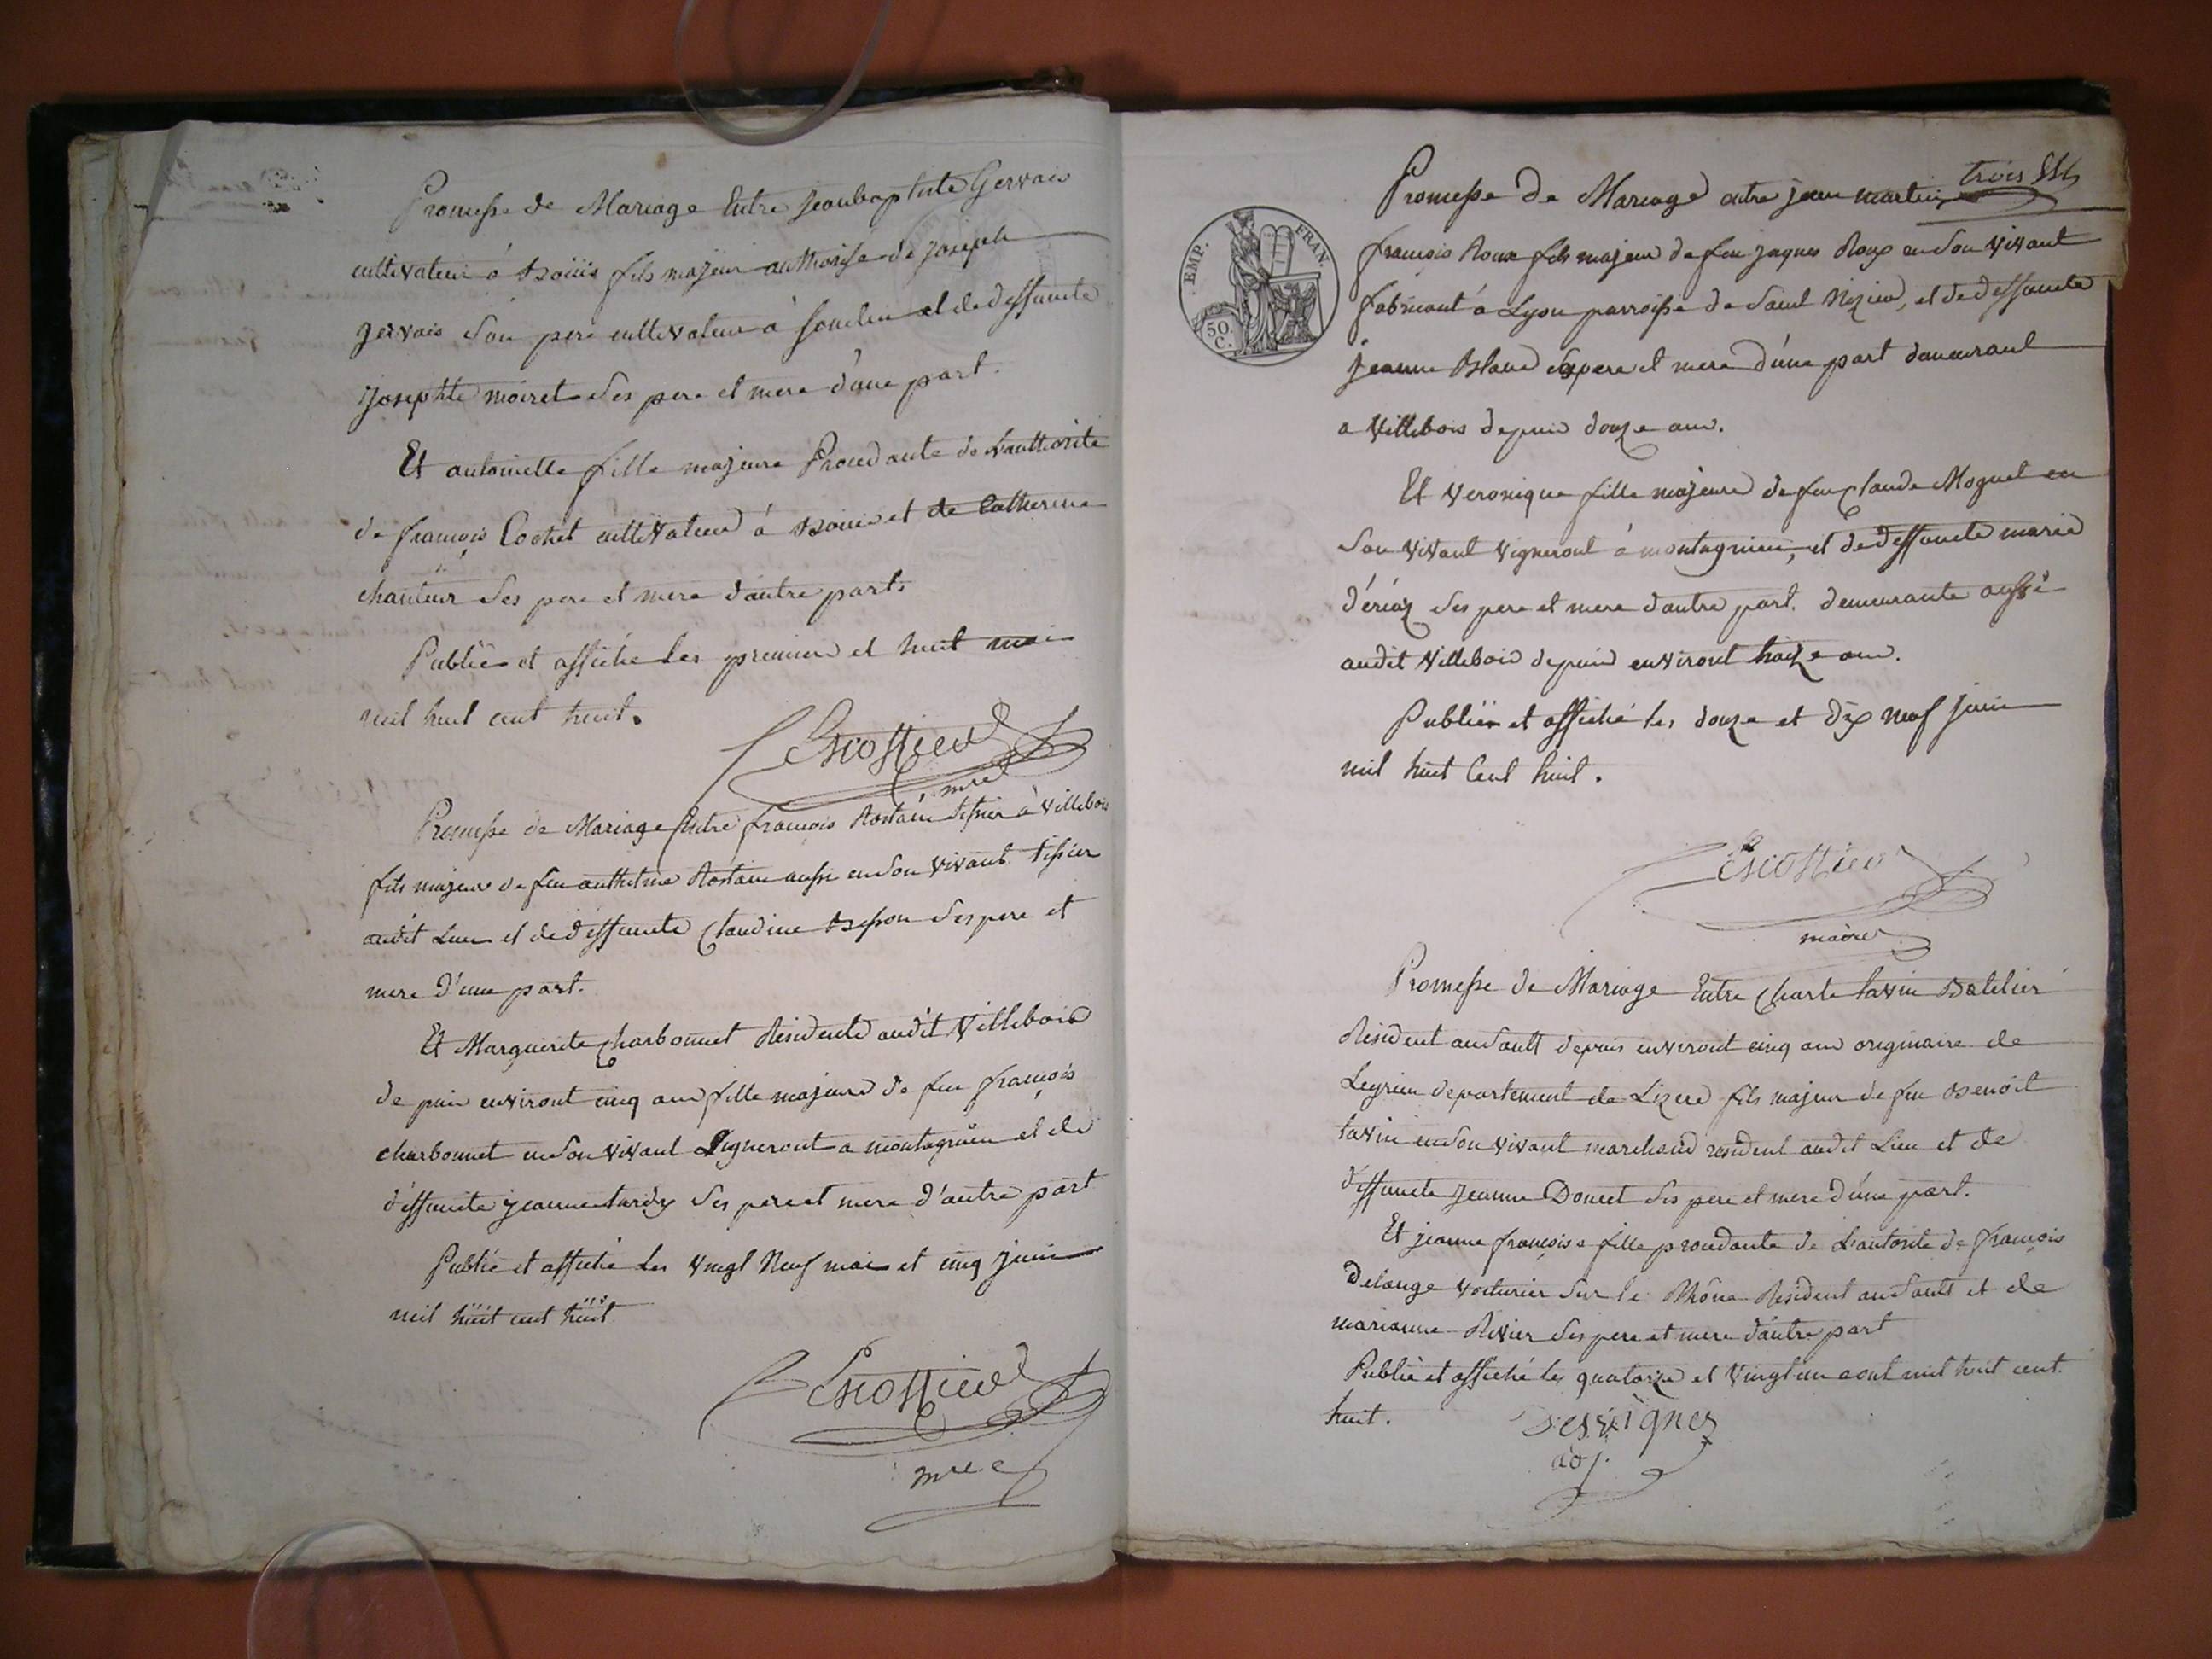 Promesse de Mariage Entre Jeanbaptiste Gervais
cultivateur á Boüis fils majeur authorisé de joseph
gervais son pere cultivateur à souclin et de deffuncte
josephte moiret ses pere et mere d'une part.
Et antoinette fille majeure Procedante de L'authorité
de françois Cochet cultivateur á Bouis et de Catherine
chanteur ses pere et mere d'autre part.
Publié et affiché les premier et huit mai
mil huit cent huit.
Escoffier
mre
Promesse de Mariage Entre françois Rostain tissier à Villebois
fils majeur de feu anthelme Rostain aussi en son vivant tissier
audit Lieu et de deffuncte Claudine Besson ses pere et
mere d'une part.
Et Marguerite Charbonnet Residente audit Villebois
depuis environt cinq ans fille majeure de feu françois
charbonnet en son vivant Vigneront a montagnieu et de
déffuncte jeanne tardy ses pere et mere d'autre part
Publié et affiché Les Vingt Neuf mai et cinq juin
mil huit cent huit
Escoffier
mre
trois
Promesse de Mariage entre jean martin
EMP. FRAN.
50. C.
françois Roux fils majeur de feu jaques Roux en son vivant
fabricant á Lyon parroisse de Saint Nizier, et de deffuncte
jeanne Blanc ses pere et mere d'une part demeurant
a Villebois depuis douze ans.
Et Veronique fille majeure de feu Claude Moguet en
son vivant Vigneront á montagnieu, et de deffuncte marie
d'ériaz ses pere et mere d'autre part. demeurante aussi
audit Villebois depuis environt treize ans.
Publiée et affiché les douze et dix neuf juin
mil huit Cent huit.
Escoffier
maire
Promesse de Mariage Entre Charle tavin Batelier
Resident au Sault depuis environt cinq ans originaire de
Leyrieu departement de Lizere fils majeur de feu Benoît
tavin en son vivant marchand resident audit Lieu et de
déffuncte jeanne Doucet ses pere et mere d'une part.
Et jeanne françoise fille procedante de L'autorité de françois
Delange Voiturier sur le Rhône Resident au Sault et de
marianne Rivier ses pere et mere d'autre part
Publié et affiché les quatorze et Vingt un aout mil huit cent
huit.
Desvignes
adj.